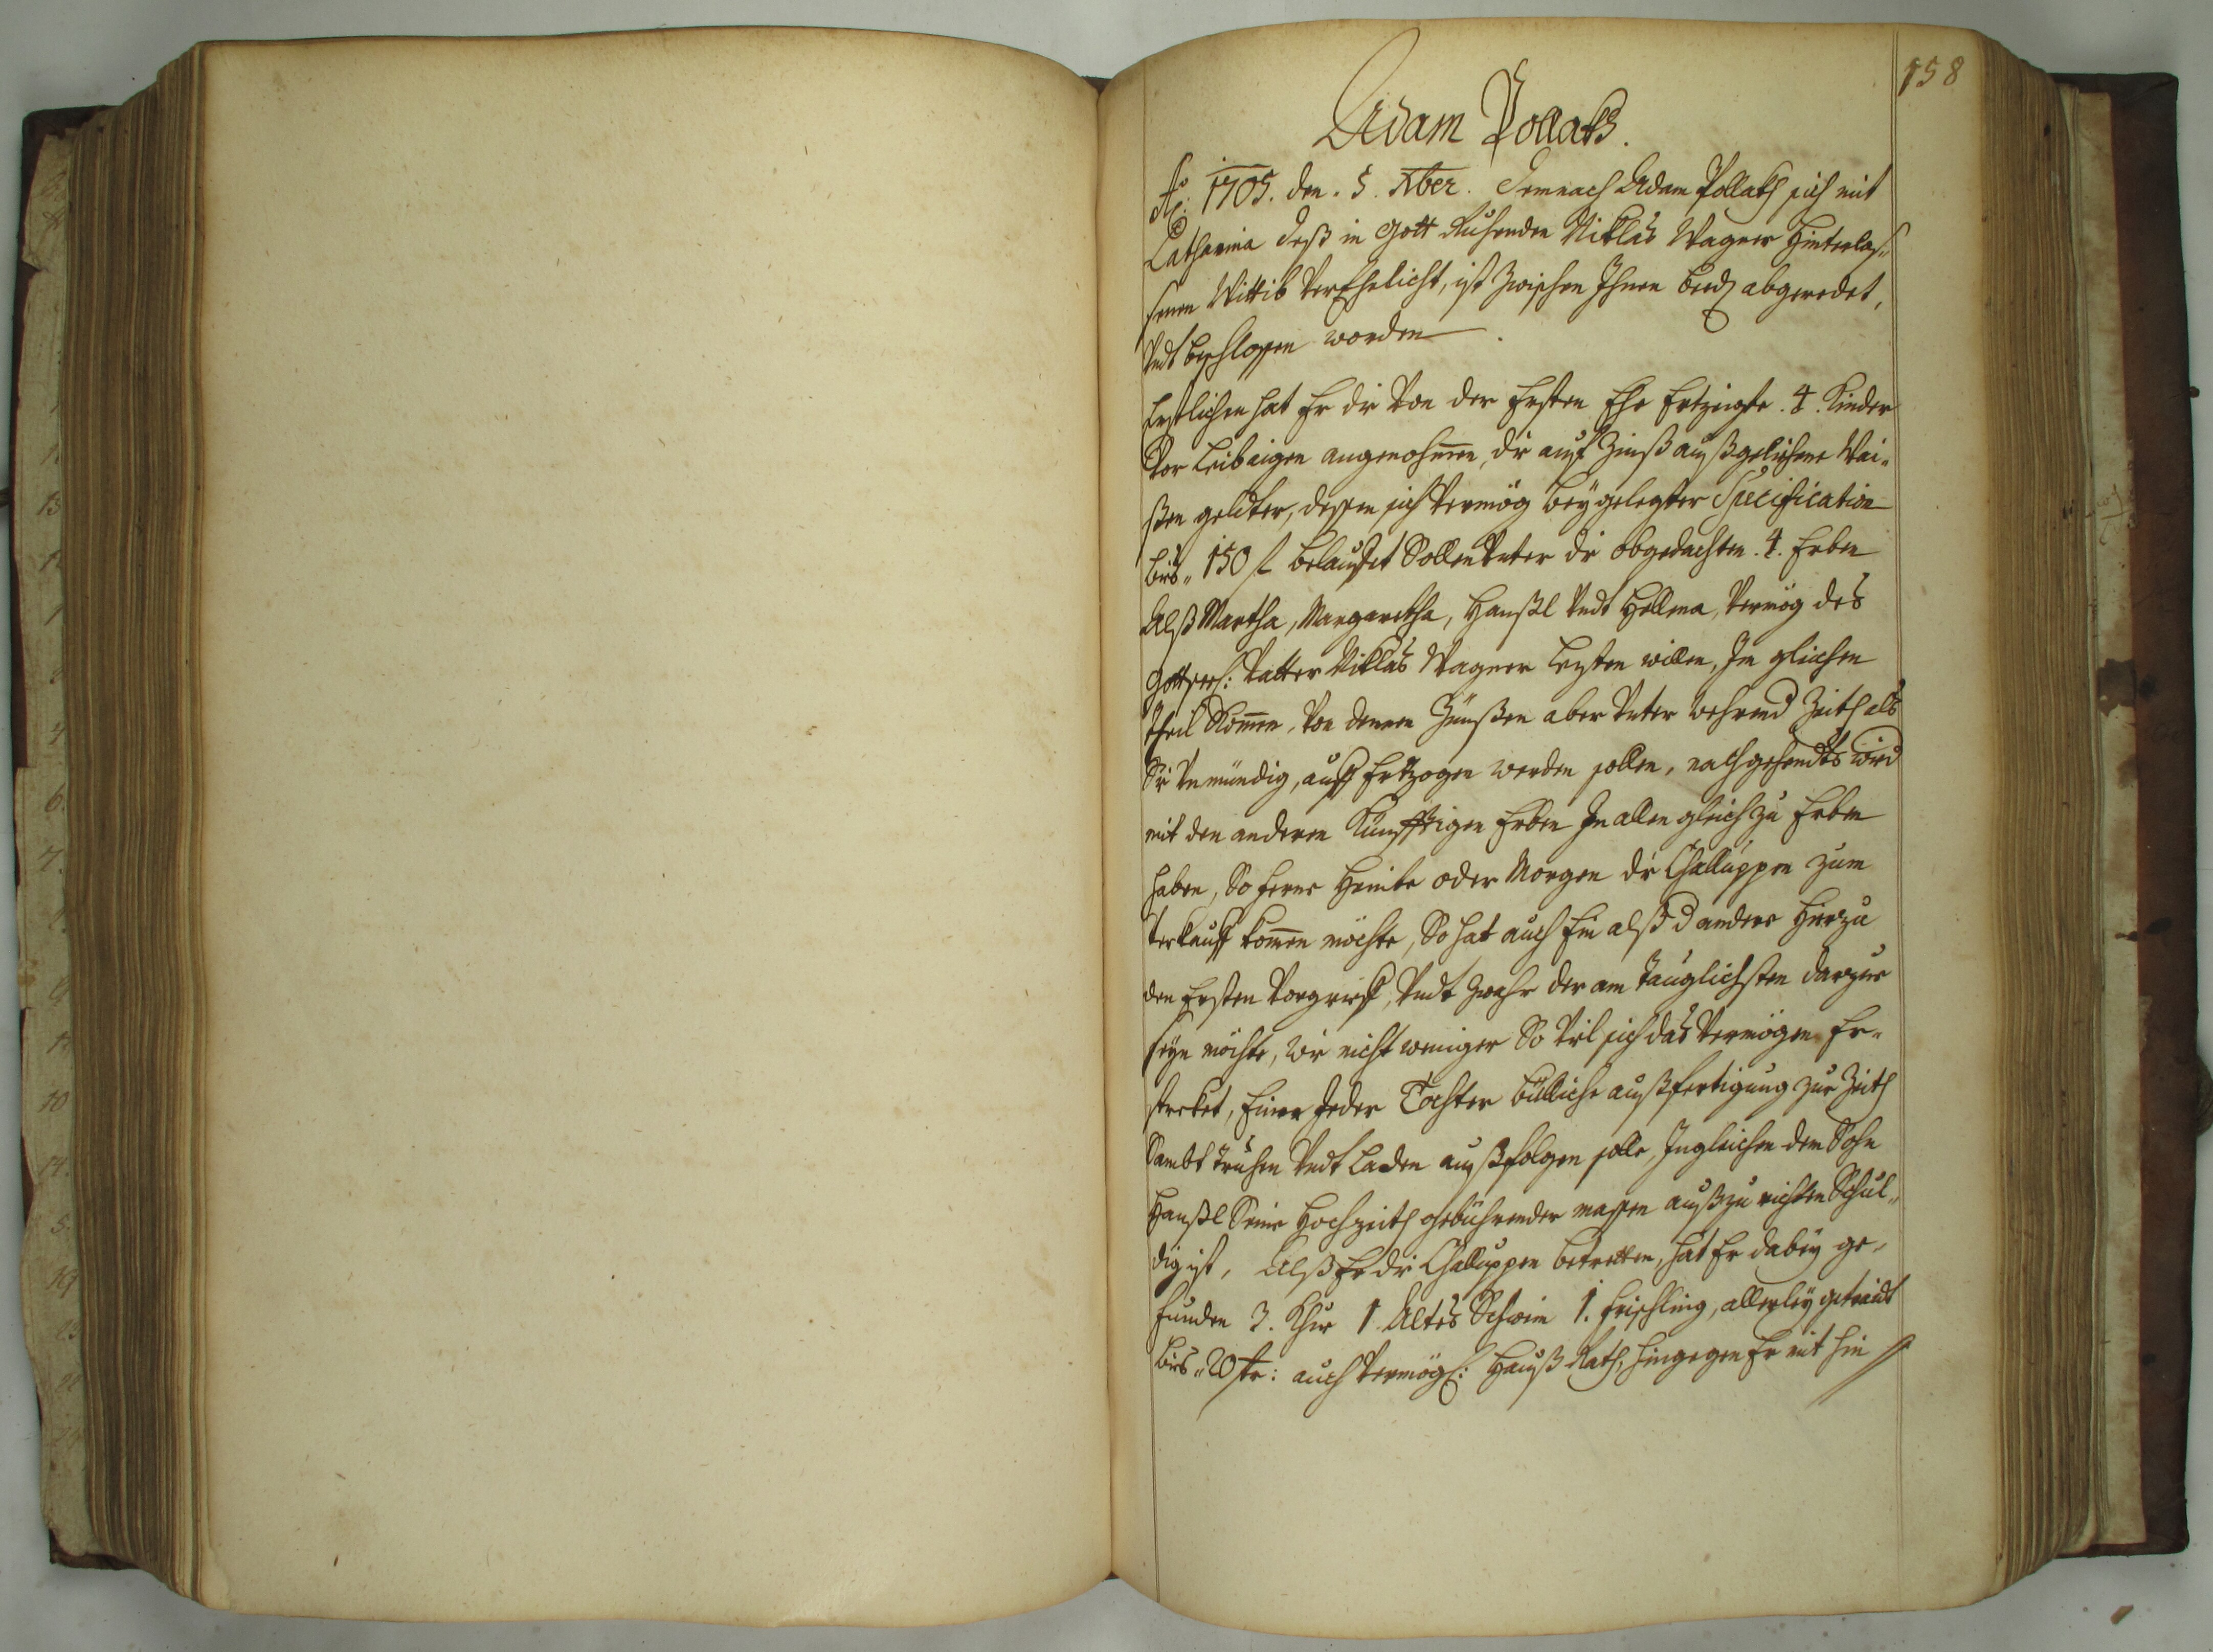 158
Adam Pollakh.
Ao: 1705. den. 5. Xber. Demnach Adam Pollakh sich mit
Catharina deß in Gott Ruhenden Niklas Wagner Hinterlas„
senen Wittib Verehelicht, ist zwischen Ihnen beeds abgeredet,
Undt beschlossen worden.
Erstlichen hat Er die Von der Ersten Ehe Erzeugte. 4. Kinder
Vor Leibaigen angenohmen, die auf Zinß außgelihene Wai„
ßen gelder, dessen sich Vermög beygelegter Specification
bis„ 150 f belauffet Sollen Unter die obgedachten. 4. Erben
Alß Martha, Margaretha, Hanßl Undt Hellena, Vermög des
Gottseel: Vatter Niklas Wagner Lezten willen, In gleichen
theil Komen, Von denen Zinnßen aber Unter wehrend Zeith als
Sie Unmündig, auff Erzogen werden sollen, nachgehendts wird
mit den anderen Künfftigen Erben In allen gleich zu Erben
haben, So ferne Heinte oder Morgen die Challuppen zum
Verkauff komen möchte, So hat auch Ein alß d andere Hierzu
den Ersten Vorgrieff, Undt zwahr der am tauglichsten darzue
seyn möchte, wie nicht weniger So Viel sich das Vermögen Er„
streket, Einer Jeder Tochter billiche außfertigung zur Zeith
Sambt Truhen Undt Laden außfolgen solle, Ingleichen dem Sohn
Hanßl Seine Hochzeith gebührender massen außzu richten Schul„
dig ist, Alß Er die Challuppen betretten, hat Er dabey ge„
funden 3. Khue 1. Altes Schwein 1. Frischling, allerley getraidt
bis„ 20 str: auch Vermögl: Hauß Rath, hingegen Er mit hin //